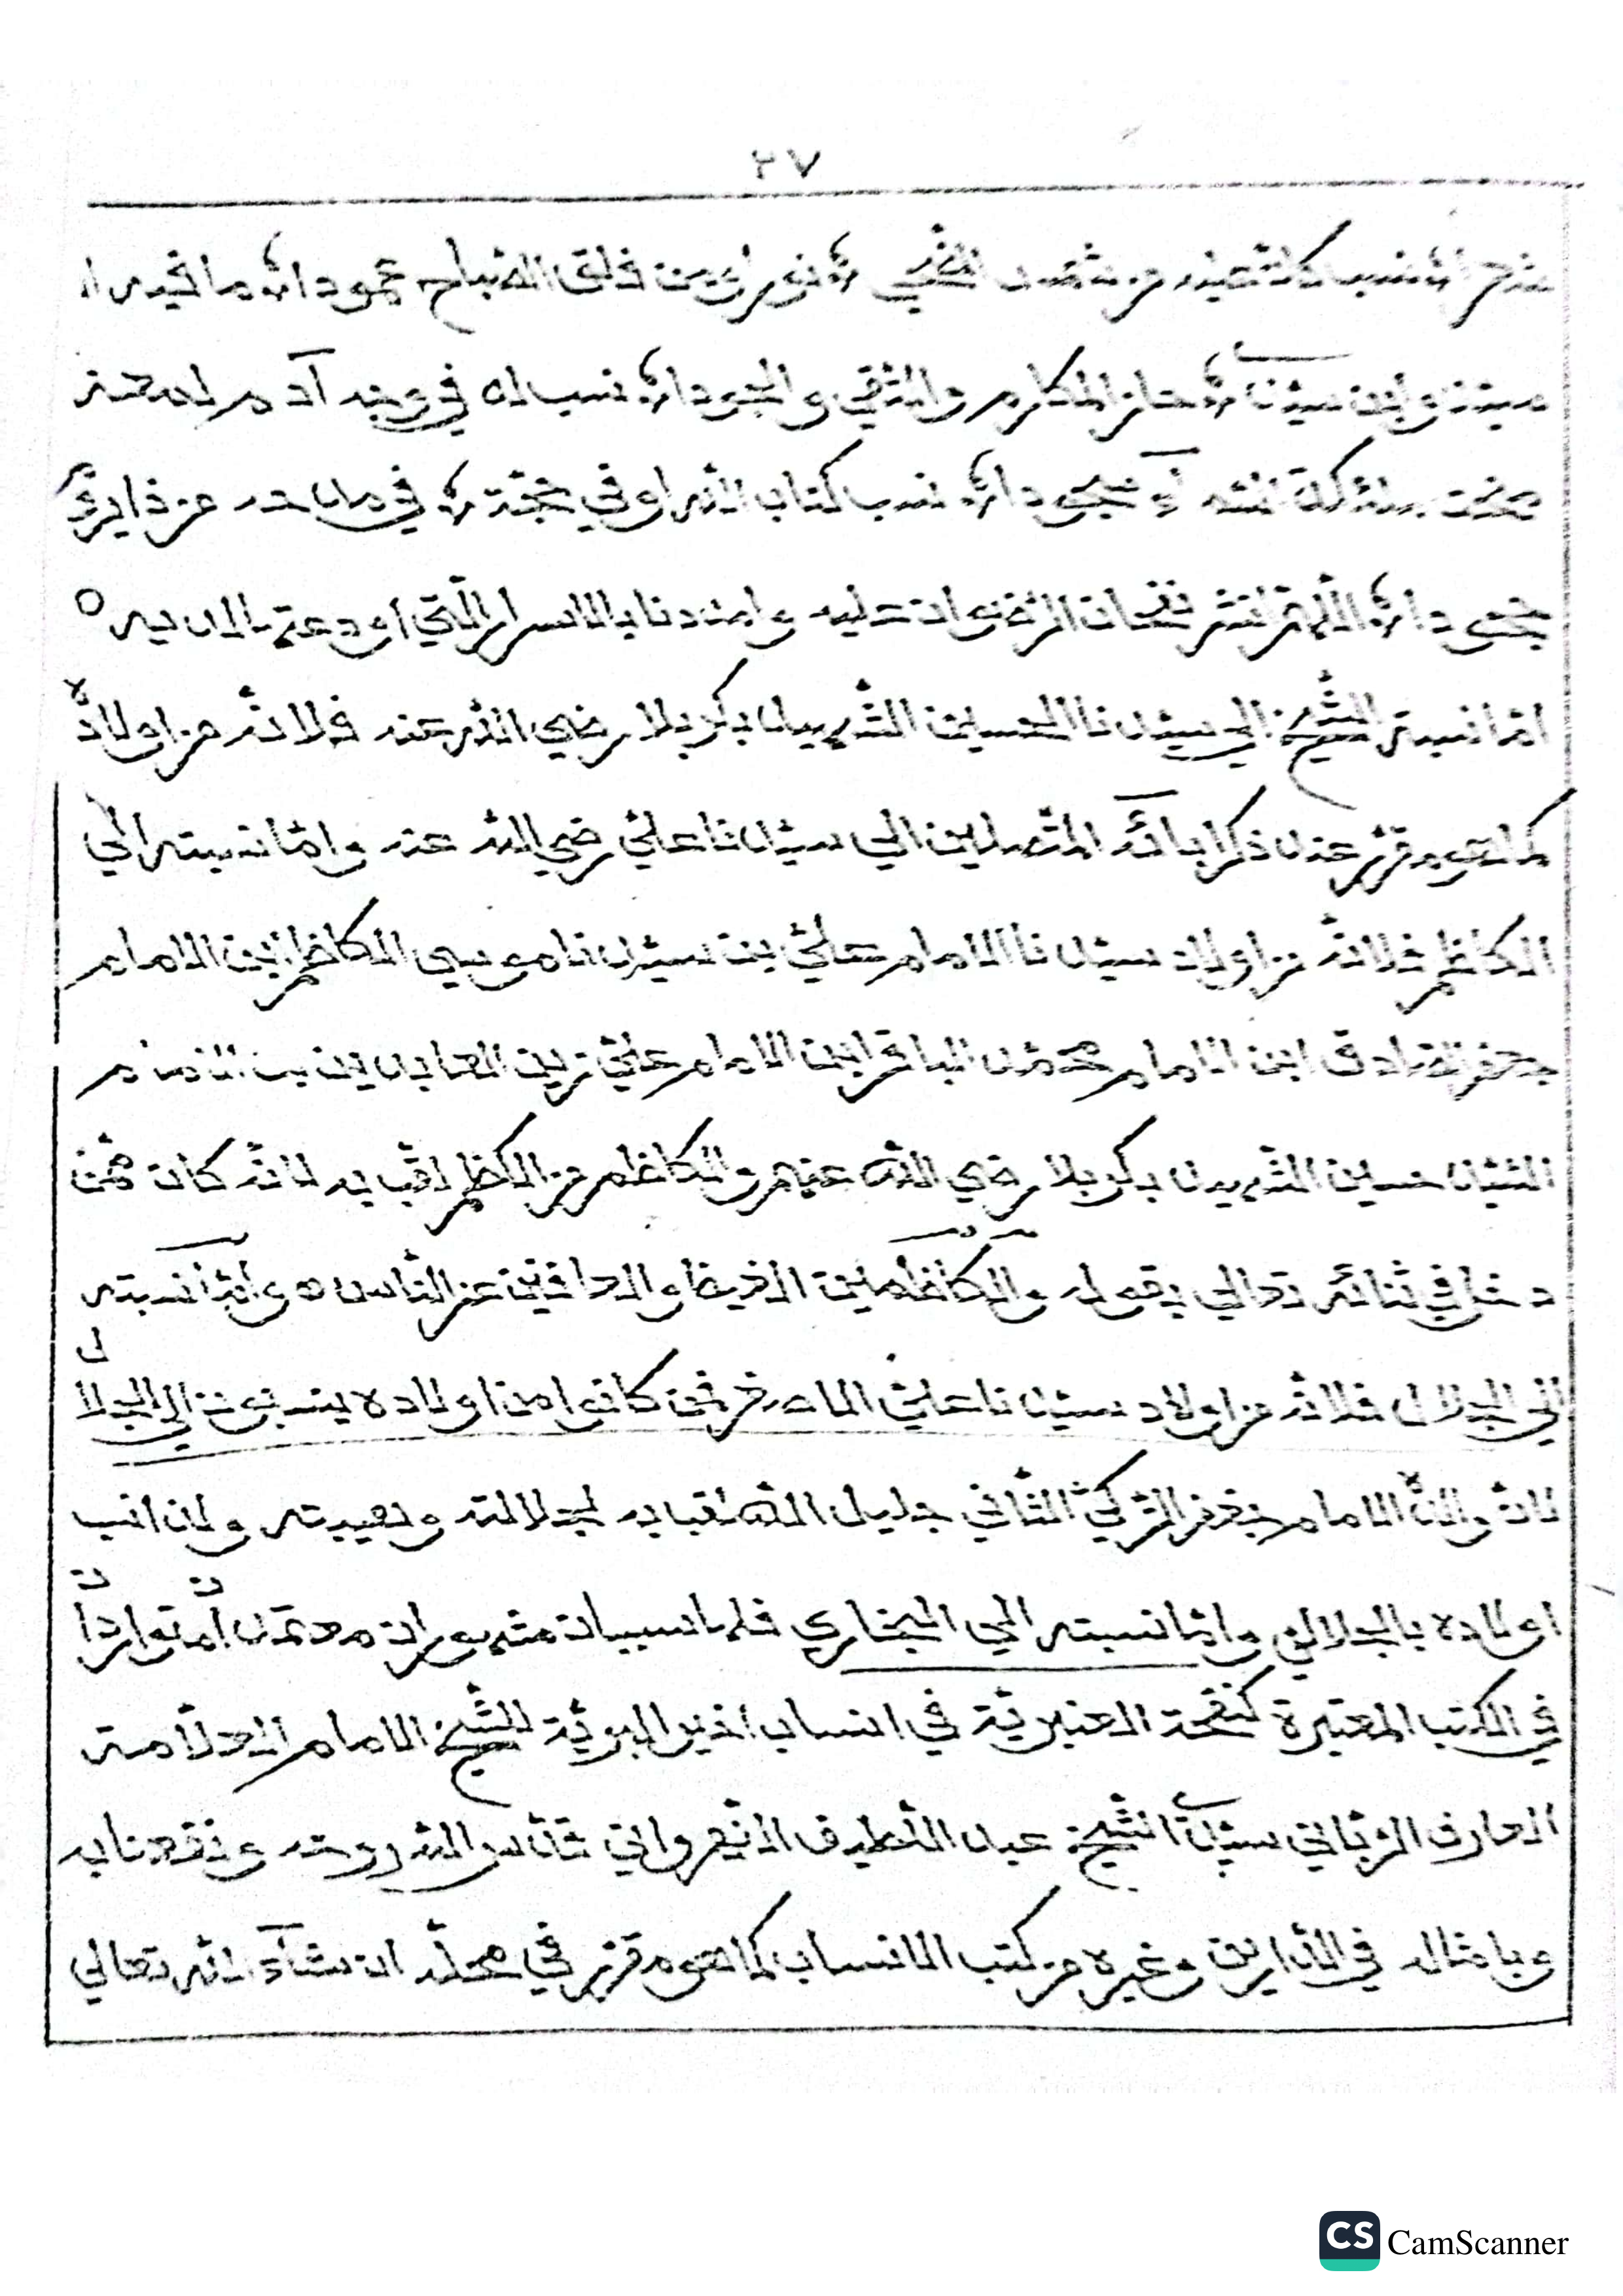 ٢٧
نسب كان عليه من شمس الضحى ۞ نورا ومن فلق الصباح عمودا ۞ ما فيه الا
سيد وابن سيد ۞ حاز المكارم والتقى والجودا ۞ نسب له في وجه آدم لمعة
نسب كتاب الله اوفى حجة ۞ في مدحه من ذا يرى
جحودا ۞ اللهم انشر نفحات الرضوان عليه وامددنا بالاسرار التي اودعتها لديه ٥
امّا نسبة الشيخ الى سيّدنا الحسين الشهيد بكربلا رضي الله عنه فلانّه من اولاده
كما هو مقرّر عند ذكر ابائه المتصلين الى سيّدنا عليّ رضي الله عنه وامّا نسبته الى
الكاظم فلانّه من اولاد سيّدنا الامام عليّ بن سيّدنا موسى الكاظم ابن الامام
جعفر الصادق ابن الامام محمّد الباقر ابن الامام عليّ زين العابدين بن الامام
السّيّد حسين الشّهيد بكربلا رضي الله عنهم والكاظم من الكظم لقّب به لانّه كان ممّن
دخل في ثنائه تعالى بقوله والكاظمين الغيظ والعافين عن النّاس ٥ وامّا نسبته
الى الجلال فلانّه من اولاد سيّدنا عليّ الاصغر فمن كانوا من اولاده ينسبون الى الجلال
لانّ والده الامام جعفر الزّكيّ الثّاني جليل الله لقب به لجلالته وهيبته ولذا نسب
اولاده بالجلالي وامّا نسبته الى البخاري فلها سببان مشهوران معتمدان تواردان
في الكتب المعتبرة كنفحة العنبريّة في انساب خير البريّة للشيخ الامام العلاّمة
العارف الرّبّاني سيّدنا الشّيخ عبد اللّطيف قدّس الله روحه ونفعنا به
وبامثاله في الدّارين وغيره من كتب الانساب كما هو مقرّر في محلّه ان شآء الله تعالى
CS CamScanner